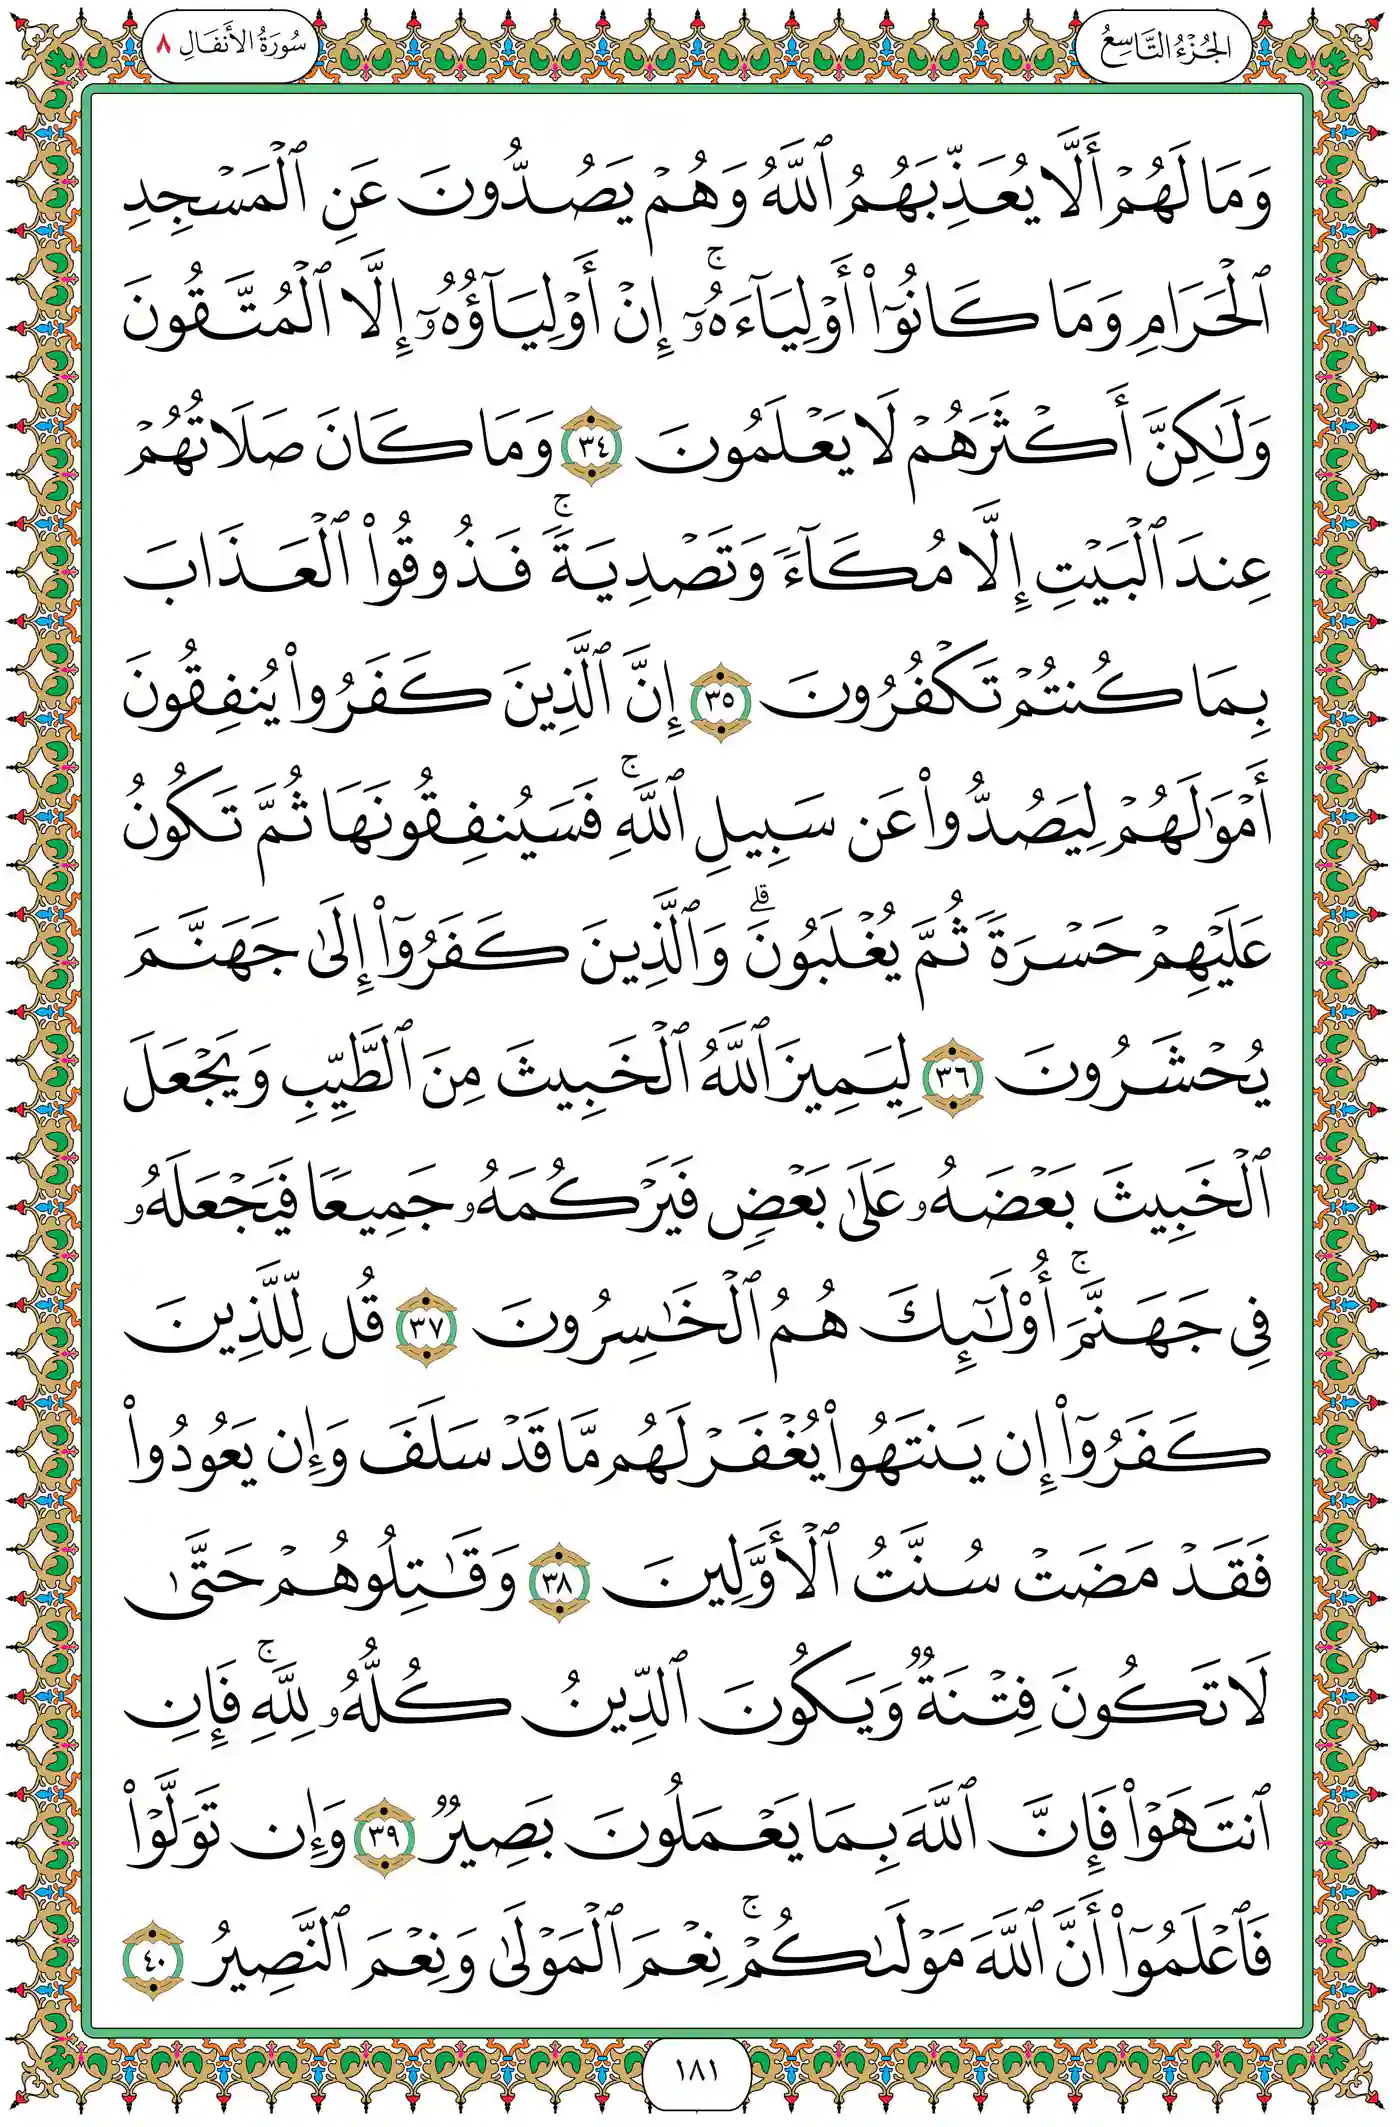 الجُزْءُ التَّاسِعُ
سُورَةُ الأَنفَالِ ٨
وَمَا لَهُمْ أَلَّا يُعَذِّبَهُمُ ٱللَّهُ وَهُمْ يَصُدُّونَ عَنِ ٱلْمَسْجِدِ
ٱلْحَرَامِ وَمَا كَانُوٓا۟ أَوْلِيَآءَهُۥٓ ۚ إِنْ أَوْلِيَآؤُهُۥٓ إِلَّا ٱلْمُتَّقُونَ
وَلَـٰكِنَّ أَكْثَرَهُمْ لَا يَعْلَمُونَ ٣٤ وَمَا كَانَ صَلَاتُهُمْ
عِندَ ٱلْبَيْتِ إِلَّا مُكَآءً وَتَصْدِيَةً ۚ فَذُوقُوا۟ ٱلْعَذَابَ
بِمَا كُنتُمْ تَكْفُرُونَ ٣٥ إِنَّ ٱلَّذِينَ كَفَرُوا۟ يُنفِقُونَ
أَمْوَٰلَهُمْ لِيَصُدُّوا۟ عَن سَبِيلِ ٱللَّهِ ۚ فَسَيُنفِقُونَهَا ثُمَّ تَكُونُ
عَلَيْهِمْ حَسْرَةً ثُمَّ يُغْلَبُونَ ۗ وَٱلَّذِينَ كَفَرُوٓا۟ إِلَىٰ جَهَنَّمَ
يُحْشَرُونَ ٣٦ لِيَمِيزَ ٱللَّهُ ٱلْخَبِيثَ مِنَ ٱلطَّيِّبِ وَيَجْعَلَ
ٱلْخَبِيثَ بَعْضَهُۥ عَلَىٰ بَعْضٍ فَيَرْكُمَهُۥ جَمِيعًا فَيَجْعَلَهُۥ
فِى جَهَنَّمَ ۚ أُو۟لَـٰٓئِكَ هُمُ ٱلْخَـٰسِرُونَ ٣٧ قُل لِّلَّذِينَ
كَفَرُوٓا۟ إِن يَنتَهُوا۟ يُغْفَرْ لَهُم مَّا قَدْ سَلَفَ وَإِن يَعُودُوا۟
فَقَدْ مَضَتْ سُنَّتُ ٱلْأَوَّلِينَ ٣٨ وَقَـٰتِلُوهُمْ حَتَّىٰ
لَا تَكُونَ فِتْنَةٌ وَيَكُونَ ٱلدِّينُ كُلُّهُۥ لِلَّهِ ۚ فَإِنِ
ٱنتَهَوْا۟ فَإِنَّ ٱللَّهَ بِمَا يَعْمَلُونَ بَصِيرٌ ٣٩ وَإِن تَوَلَّوْا۟
فَٱعْلَمُوٓا۟ أَنَّ ٱللَّهَ مَوْلَىٰكُمْ ۚ نِعْمَ ٱلْمَوْلَىٰ وَنِعْمَ ٱلنَّصِيرُ ٤٠
١٨١